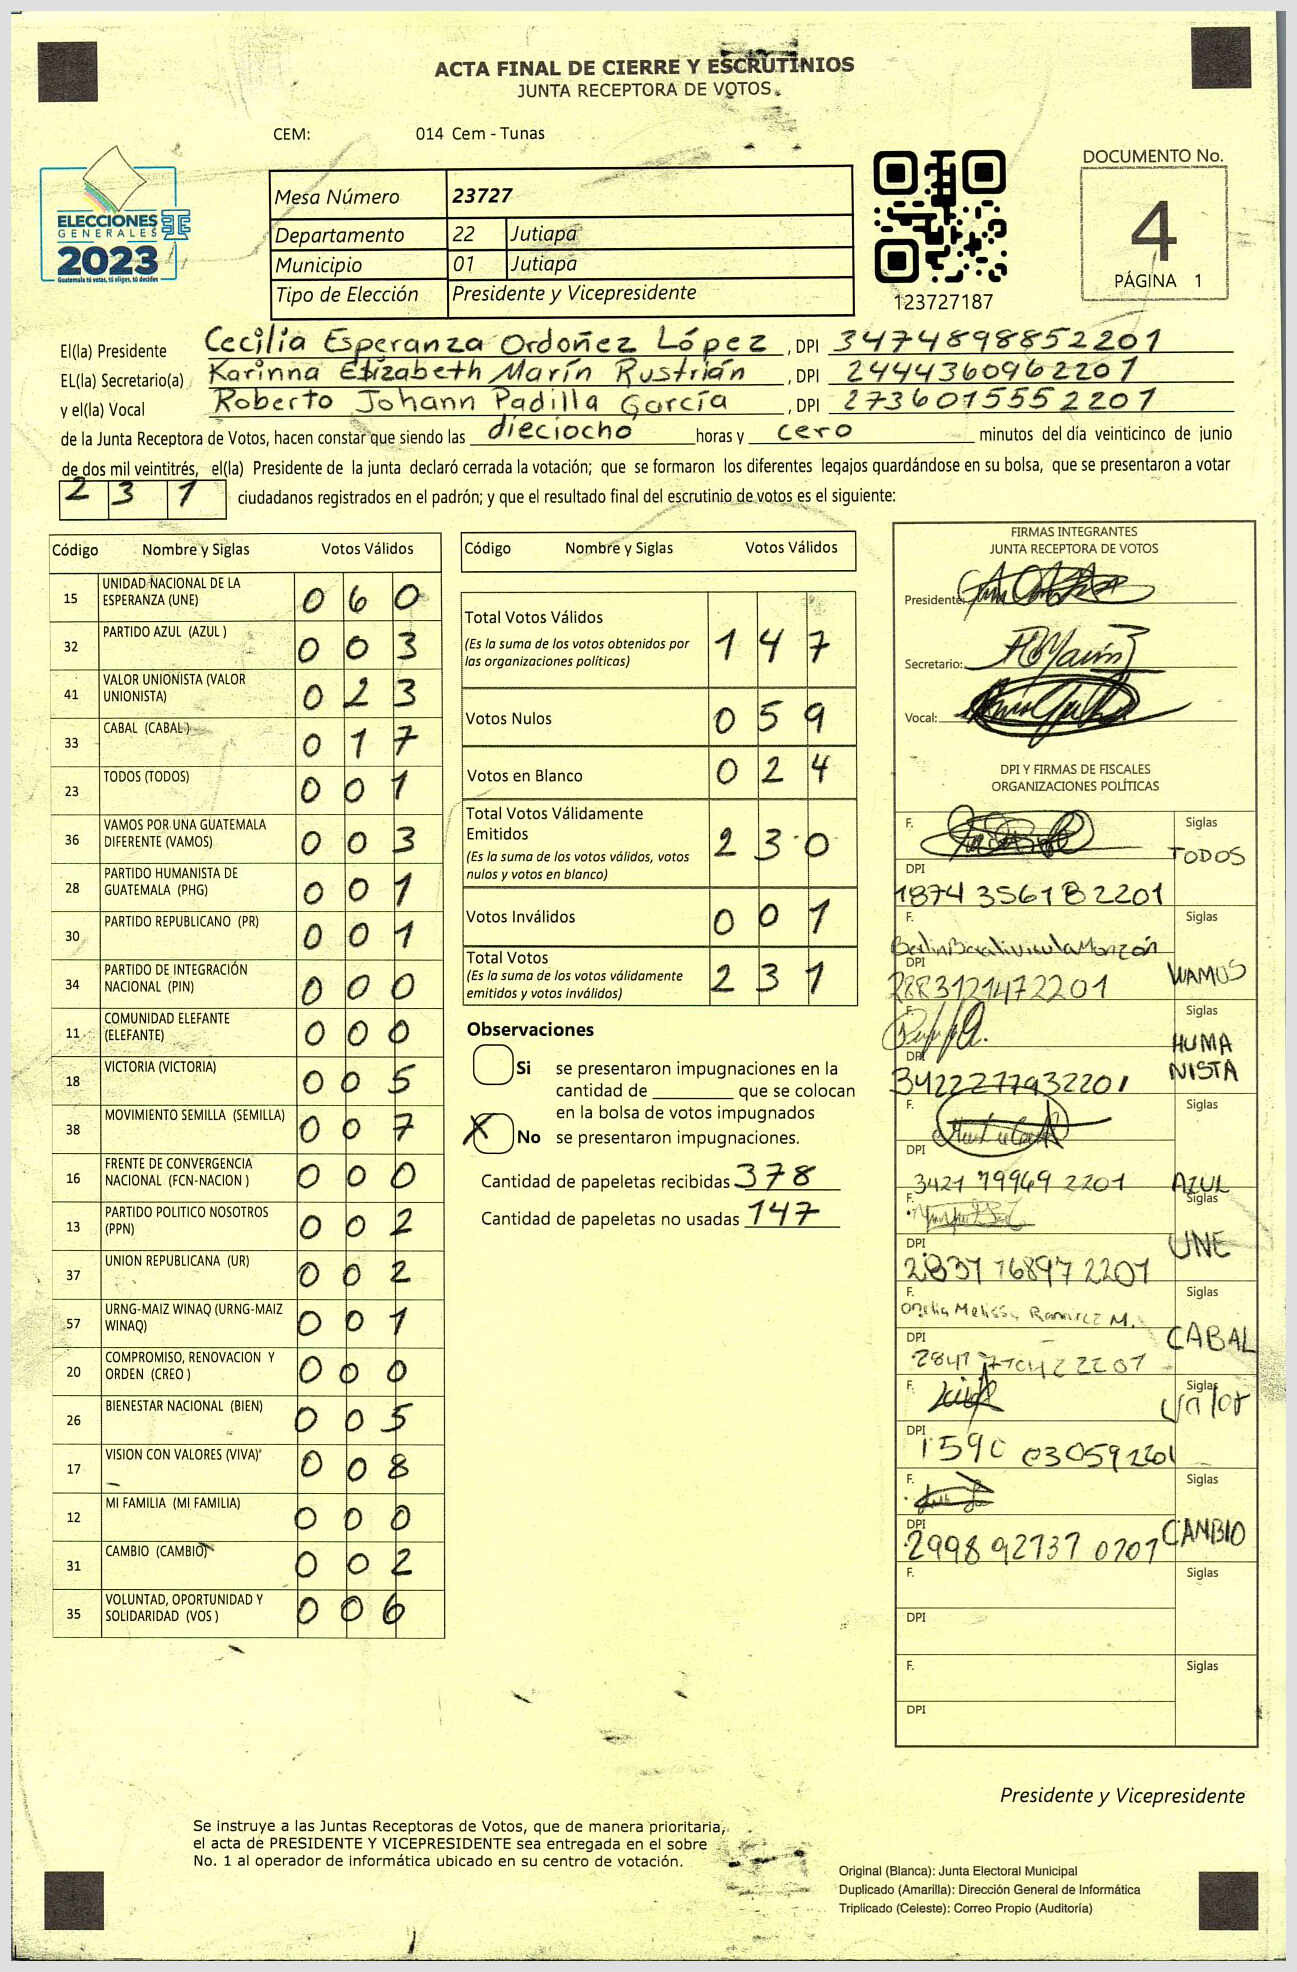 ACTA FINAL DE CIERRE Y ESCRUTINIOS
JUNTA RECEPTORA DE VOTOS.
CEM: 014 Cem - Tunas
ELECCIONES
GENERALES
2023
Guatemala tú votas, tú eliges, tú decides
Mesa Número 23727
Departamento 22 Jutiapa
Municipio 01 Jutiapa
Tipo de Elección Presidente y Vicepresidente
123727187
DOCUMENTO No.
4
PÁGINA 1
El(la) Presidente Cecilia Esperanza Ordoñez López , DPI 3474898852201
EL(la) Secretario(a) Karinna Elizabeth Marín Rustrián , DPI 2444360962201
y el(la) Vocal Roberto Johann Padilla García , DPI 2736015552201
de la Junta Receptora de Votos, hacen constar que siendo las dieciocho horas y cero minutos del día veinticinco de junio
de dos mil veintitrés, el(la) Presidente de la junta declaró cerrada la votación; que se formaron los diferentes legajos guardándose en su bolsa, que se presentaron a votar
231 ciudadanos registrados en el padrón; y que el resultado final del escrutinio de votos es el siguiente:
Código Nombre y Siglas Votos Válidos
15 UNIDAD NACIONAL DE LA ESPERANZA (UNE) 060
32 PARTIDO AZUL (AZUL ) 003
41 VALOR UNIONISTA (VALOR UNIONISTA) 023
33 CABAL (CABAL ) 017
23 TODOS (TODOS) 001
36 VAMOS POR UNA GUATEMALA DIFERENTE (VAMOS) 003
28 PARTIDO HUMANISTA DE GUATEMALA (PHG) 001
30 PARTIDO REPUBLICANO (PR) 001
34 PARTIDO DE INTEGRACIÓN NACIONAL (PIN) 000
11 COMUNIDAD ELEFANTE (ELEFANTE) 000
18 VICTORIA (VICTORIA) 005
38 MOVIMIENTO SEMILLA (SEMILLA) 007
16 FRENTE DE CONVERGENCIA NACIONAL (FCN-NACION ) 000
13 PARTIDO POLITICO NOSOTROS (PPN) 002
37 UNION REPUBLICANA (UR) 002
57 URNG-MAIZ WINAQ (URNG-MAIZ WINAQ) 001
20 COMPROMISO, RENOVACION Y ORDEN (CREO ) 000
26 BIENESTAR NACIONAL (BIEN) 005
17 VISION CON VALORES (VIVA) 008
12 MI FAMILIA (MI FAMILIA) 000
31 CAMBIO (CAMBIO) 002
35 VOLUNTAD, OPORTUNIDAD Y SOLIDARIDAD (VOS ) 006
Código Nombre y Siglas Votos Válidos
Total Votos Válidos 147
(Es la suma de los votos obtenidos por
las organizaciones políticas)
Votos Nulos 059
Votos en Blanco 024
Total Votos Válidamente
Emitidos 230
(Es la suma de los votos válidos, votos
nulos y votos en blanco)
Votos Inválidos 001
Total Votos 231
(Es la suma de los votos válidamente
emitidos y votos inválidos)
Observaciones
Si se presentaron impugnaciones en la
cantidad de ________ que se colocan
en la bolsa de votos impugnados
X No se presentaron impugnaciones.
Cantidad de papeletas recibidas 378
Cantidad de papeletas no usadas 147
FIRMAS INTEGRANTES
JUNTA RECEPTORA DE VOTOS
Presidente:
Secretario:
Vocal:
DPI Y FIRMAS DE FISCALES
ORGANIZACIONES POLÍTICAS
F. Siglas
TODOS
DPI
1874 35618 2201
F. Siglas
DPI WAMUS
2883121472201
F. Siglas
HUMA
NISTA
DPI
3422277932201
F. Siglas
DPI
3421 79969 2201 AZUL
F. Siglas
UNE
DPI
2837 16897 2201
F. Siglas
Melissa Ramirez M.
CABAL
DPI
F. Siglas
Valor
DPI
1590
F. Siglas
CAMBIO
DPI
2998 92737 0701
F. Siglas
DPI
F. Siglas
DPI
Presidente y Vicepresidente
Se instruye a las Juntas Receptoras de Votos, que de manera prioritaria,
el acta de PRESIDENTE Y VICEPRESIDENTE sea entregada en el sobre
No. 1 al operador de informática ubicado en su centro de votación.
Original (Blanca): Junta Electoral Municipal
Duplicado (Amarilla): Dirección General de Informática
Triplicado (Celeste): Correo Propio (Auditoría)